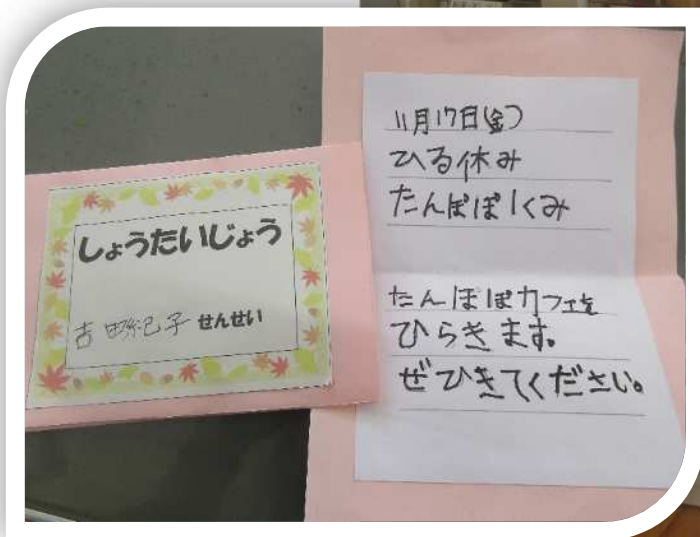 しょうたいじょう
吉田紀子 せんせい
11月17日(金)
ひる休み
たんぽぽ1くみ
たんぽぽカフェを
ひらきます。
ぜひきてください。